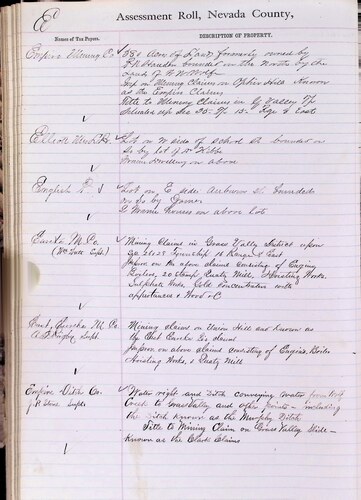 E
Assessment Roll, Nevada County,
Names of Tax Payers.
DESCRIPTION OF PROPERTY.
Empire Mining Co
Acres of Land formerly owned by
bounded on the North by the
Land of
Imp on Mining Claims on Ophir Hill known
as the Empire Claims
Title to Mining Claims in G Valley Tp
Situated
Elliott
Lot on W side of School St bounded on
So by lot of
Frame Dwelling on above
English
Lot on E side Auburn St bounded
on So by James
House on above Lot
Eureka M. Co
Mining Claims in Grass Valley District upon
(Wm Watt Supt.)
Township 16 Range 8 East
Improv on the above claims consisting of Engine
Boilers, 20 Stamp Quartz Mill, Hoisting Works,
Sulphuret Works Gold Concentrators with
appurtences & Wood &c
East Eureka M. Co
Mining claims on Union Hill and known as
Supt.
the East Eureka Co's claims
Improv on above claims consisting of Engine Boiler
Hoisting Works, & Quartz Mill
Empire Ditch Co.
Water right and Ditch conveying water from Wolf
Supt.
Creek to Grass Valley and other points - including
the Ditch known as the Murphy Ditch
Title to Mining Claim on Grass Valley Slide -
known as the Clark Claims